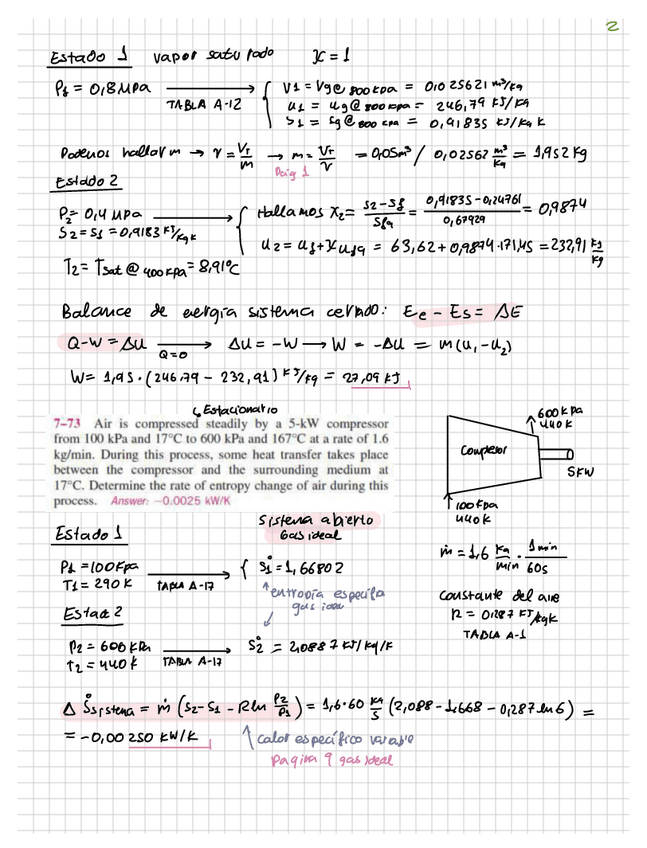 2
Estado 1 vapor saturado x = 1
P1 = 0,8 MPa → TABLA A-12 { v1 = vg @ 800 kPa = 0,025621 m³/kg
u1 = ug @ 800 kPa = 246,79 kJ/kg
s1 = sg @ 800 kPa = 0,91835 kJ/kg K
Podemos hallar m → v = VT/m → m = VT/v = 0,05m³ / 0,02562 m³/kg = 1,952 kg
Paig 1
Estado 2
P2 = 0,4 MPa
S2 = S1 = 0,9183 kJ/kg K → { Hallamos x2 = s2-sf/sfg = 0,91835-0,24761/0,67929 = 0,9874
u2 = uf + x ufg = 63,62 + 0,9874 · 171,45 = 232,91 kJ/kg
T2 = Tsat @ 400 kPa = 8,91°C
Balance de energía sistema cerrado: Ee - Es = ΔE
Q - W = ΔU → Q=0 ΔU = -W → W = -ΔU = m(u1 - u2)
W = 1,95 · (246.79 - 232,91) kJ/kg = 27,09 kJ
↳ Estacionario
7–73 Air is compressed steadily by a 5-kW compressor
from 100 kPa and 17°C to 600 kPa and 167°C at a rate of 1.6
kg/min. During this process, some heat transfer takes place
between the compressor and the surrounding medium at
17°C. Determine the rate of entropy change of air during this
process. Answer: –0.0025 kW/K
600 kPa
440 K
Compresor
5KW
100 kPa
440 K
Estado 1
Sistema abierto
Gas ideal
P1 = 100 kPa
T1 = 290 K → TABLA A-17 { s°1 = 1,66802
↑ entropía específica
gas ideal
ṁ = 1,6 kg/min · 1 min/60s
Constante del aire
R = 0,287 kJ/kgK
TABLA A-1
Estado 2
P2 = 600 kPa
T2 = 440 K → TABLA A-17 s°2 = 2,0887 kJ/kg/K
Δ Ṡsistema = ṁ (s2 - s1 - R ln P2/P1) = 1,6·60 kg/s (2,088 - 1.668 - 0,287 ln 6) =
= -0,00250 kW/K
↑ calor específico variable
Pagina 9 gas ideal